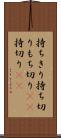 持ちきり持ち切
りもち切り
持切り